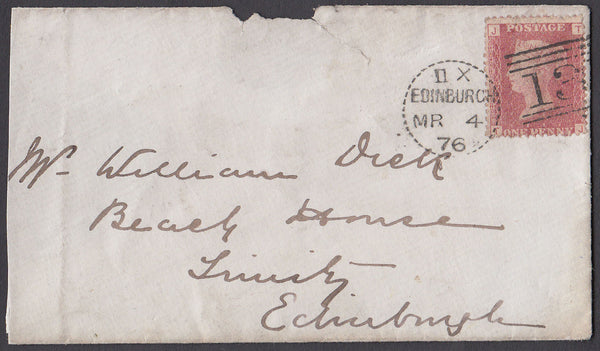 J POSTAGE T
II X
EDINBURGH
MR 4
76
13
ONE PENNY
Mr William Dick
Beach House
Trinity
Edinburgh